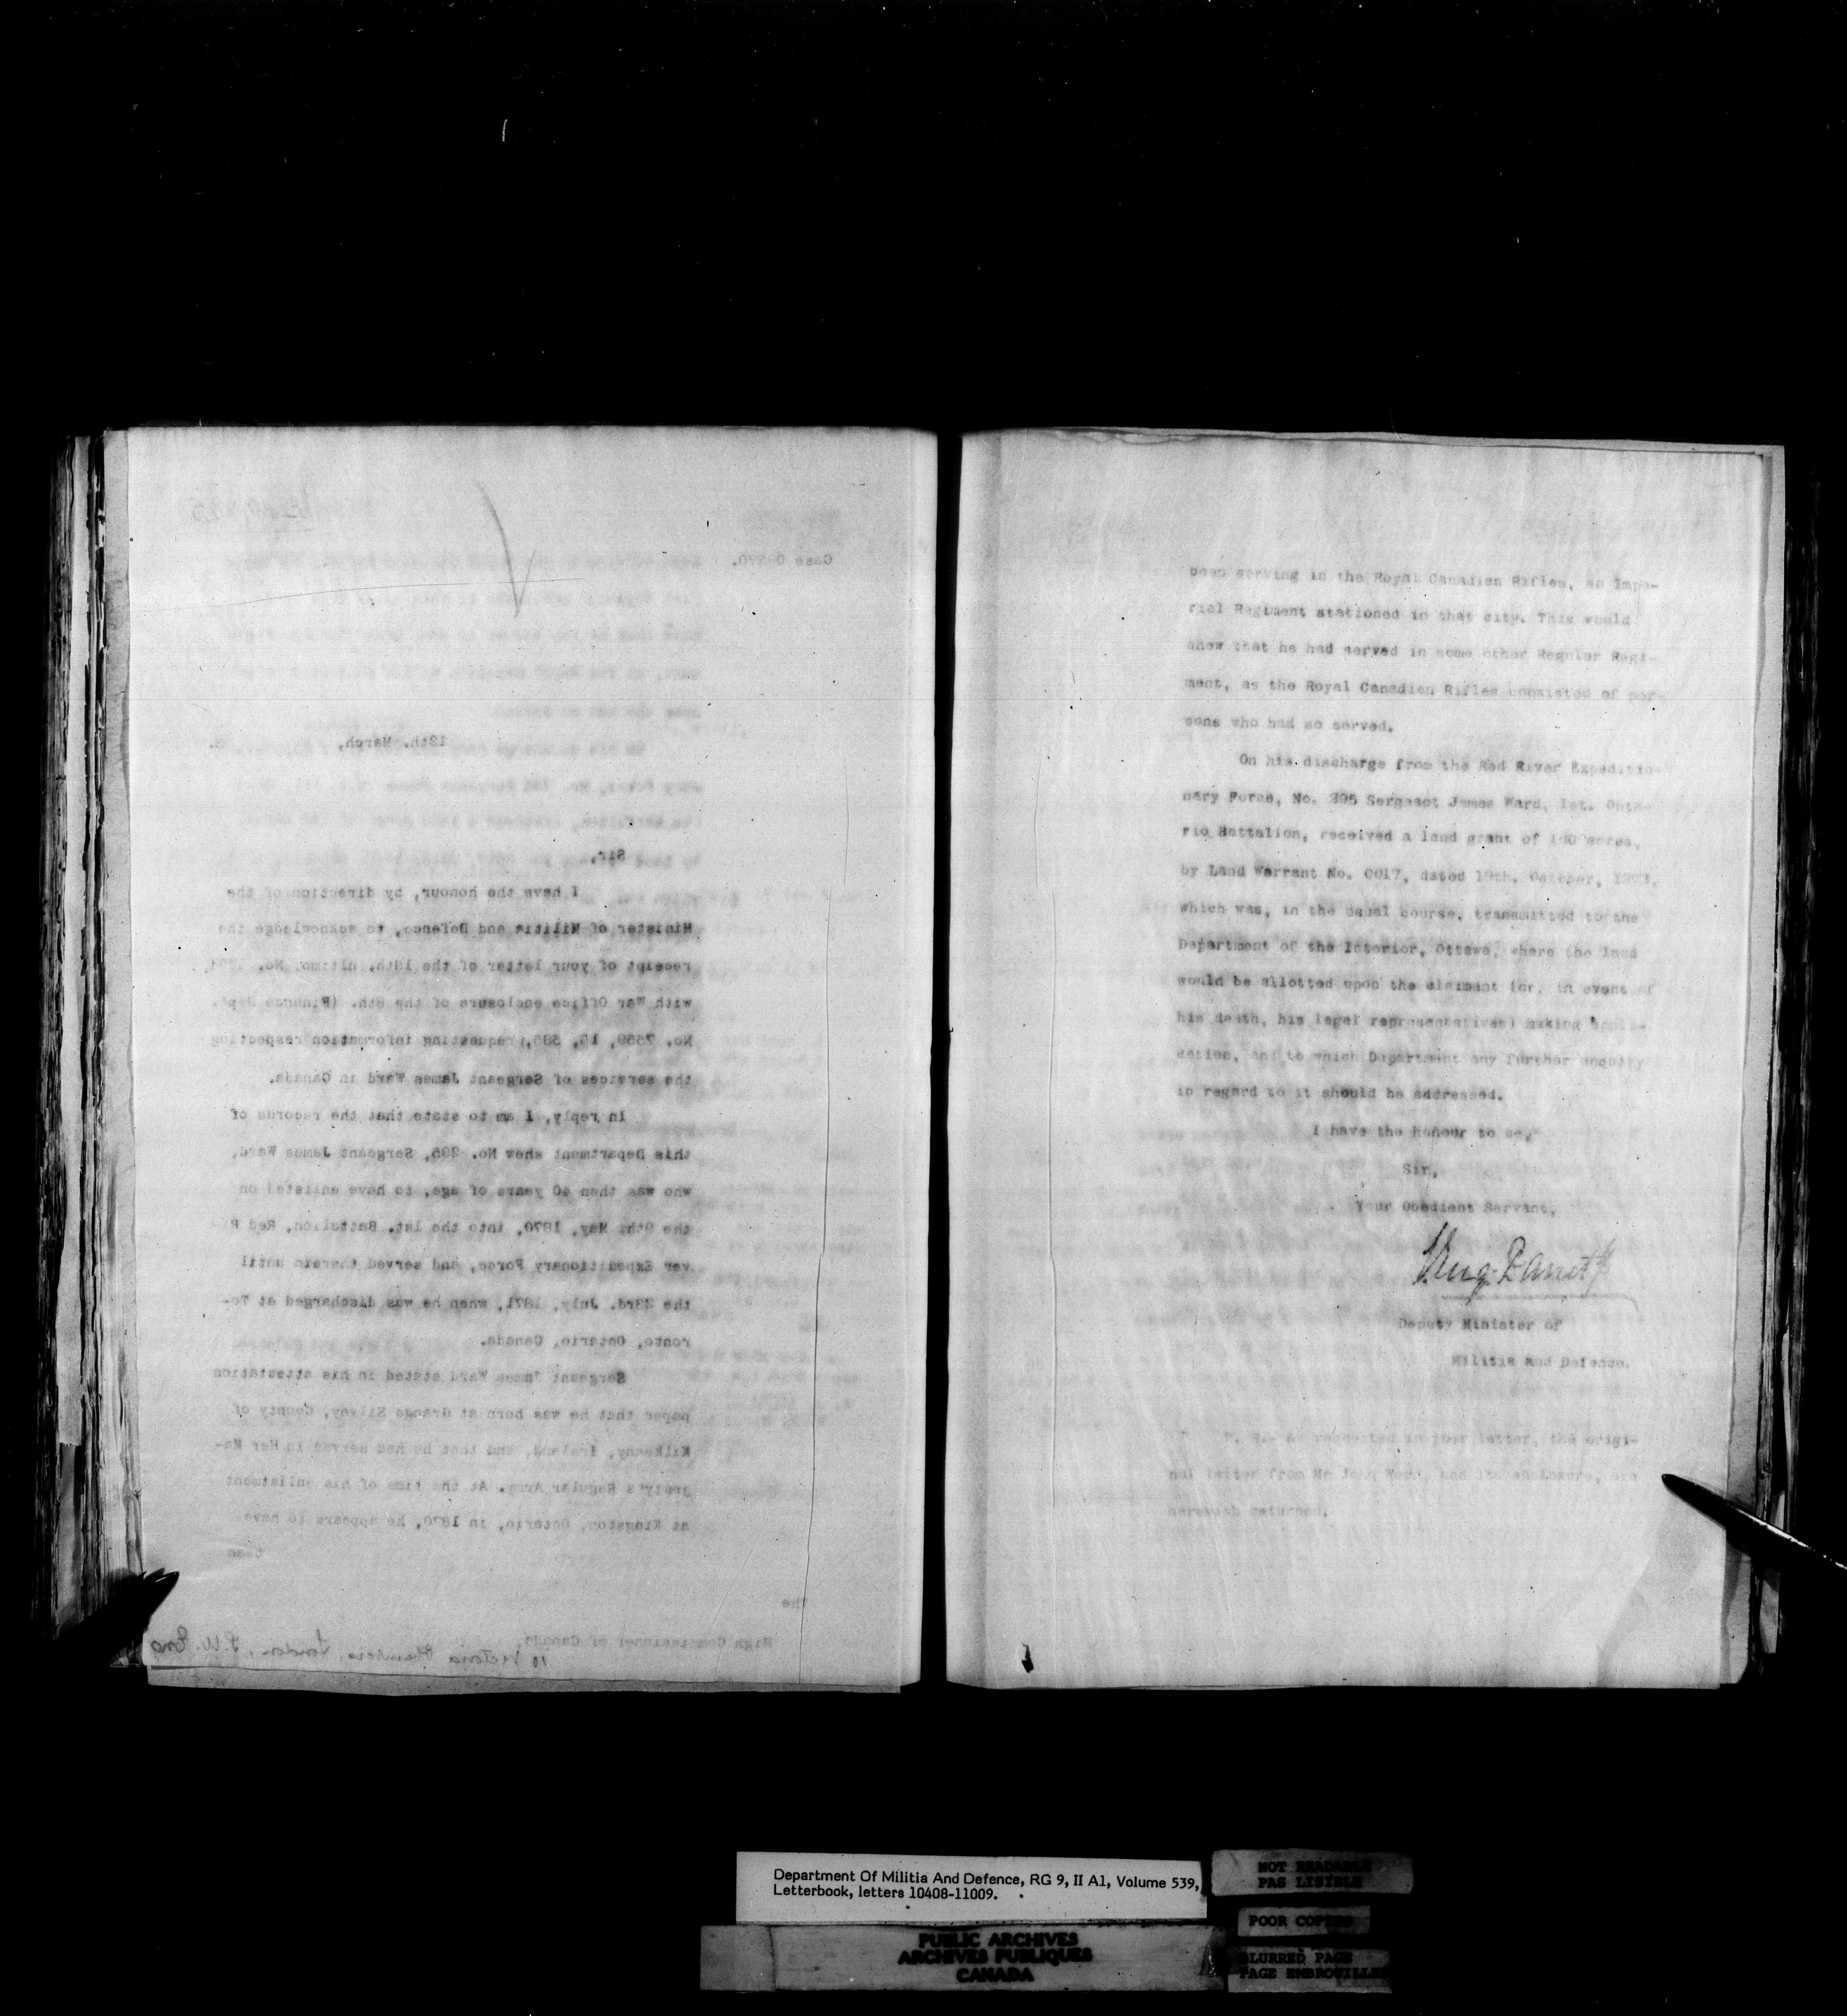 Case 0
12th. March,
Sir,
I have the honour, by direction of the
Minister of Militia and Defence, to acknowledge the
receipt of your letter of the 18th. ultimo, No.
with War Office enclosure of the 8th. (Finance Dept.
No. 7559, requesting information respecting
the services of Sergeant James Ward in Canada.
In reply, I am to state that the records of
this Department shew No. 295, Sergeant James Ward,
who was then 40 years of age, to have enlisted on
the 9th. May, 1870, into the 1st. Battalion, Red Ri-
ver Expeditionary Force, and served therein until
the 23rd. July, 1871, when he was discharged at To-
ronto, Ontario, Canada.
Sergeant James Ward stated in his attestation
paper that he was born at Grange Silvey, County of
Kilkenny, Ireland, and that he had served in Her Ma-
jesty's Regular Army. At the time of his enlistment
at Kingston, Ontario, in 1870, he appears to have
been
The
High Commissioner of Canada,
Victoria Chambers, London, S.W. Eng
been serving in the Royal Canadian Rifles, an Impe-
rial Regiment stationed in that city. This would
shew that he had served in some other Regular Regi-
ment, as the Royal Canadian Rifles consisted of per-
sons who had so served.
On his discharge from the Red River Expeditio-
nary Force, No. 295 Sergeant James Ward, 1st. Onta-
rio Battalion, received a land grant of 160 acres,
by Land Warrant No. 0017, dated 19th. October,
which was, in the usual course, transmitted to the
Department of the Interior, Ottawa, where the land
would be allotted upon the claimant (or, in event of
his death, his legal representatives) making appli-
cation, and to which Department any further enquiry
in regard to it should be addressed.
I have the honour to be,
Sir,
Your Obedient Servant,
Deputy Minister of
Militia and Defence.
As requested in your letter, the origi-
nal letter from Mr John and its enclosure, are
herewith returned.
Department Of Militia And Defence, RG 9, II A1, Volume 539,
Letterbook, letters 10408-11009.
PUBLIC ARCHIVES
ARCHIVES PUBLIQUES
CANADA
NOT READABLE
PAS LISIBLE
POOR COPIES
BLURRED PAGE
PAGE EMBROUILLE